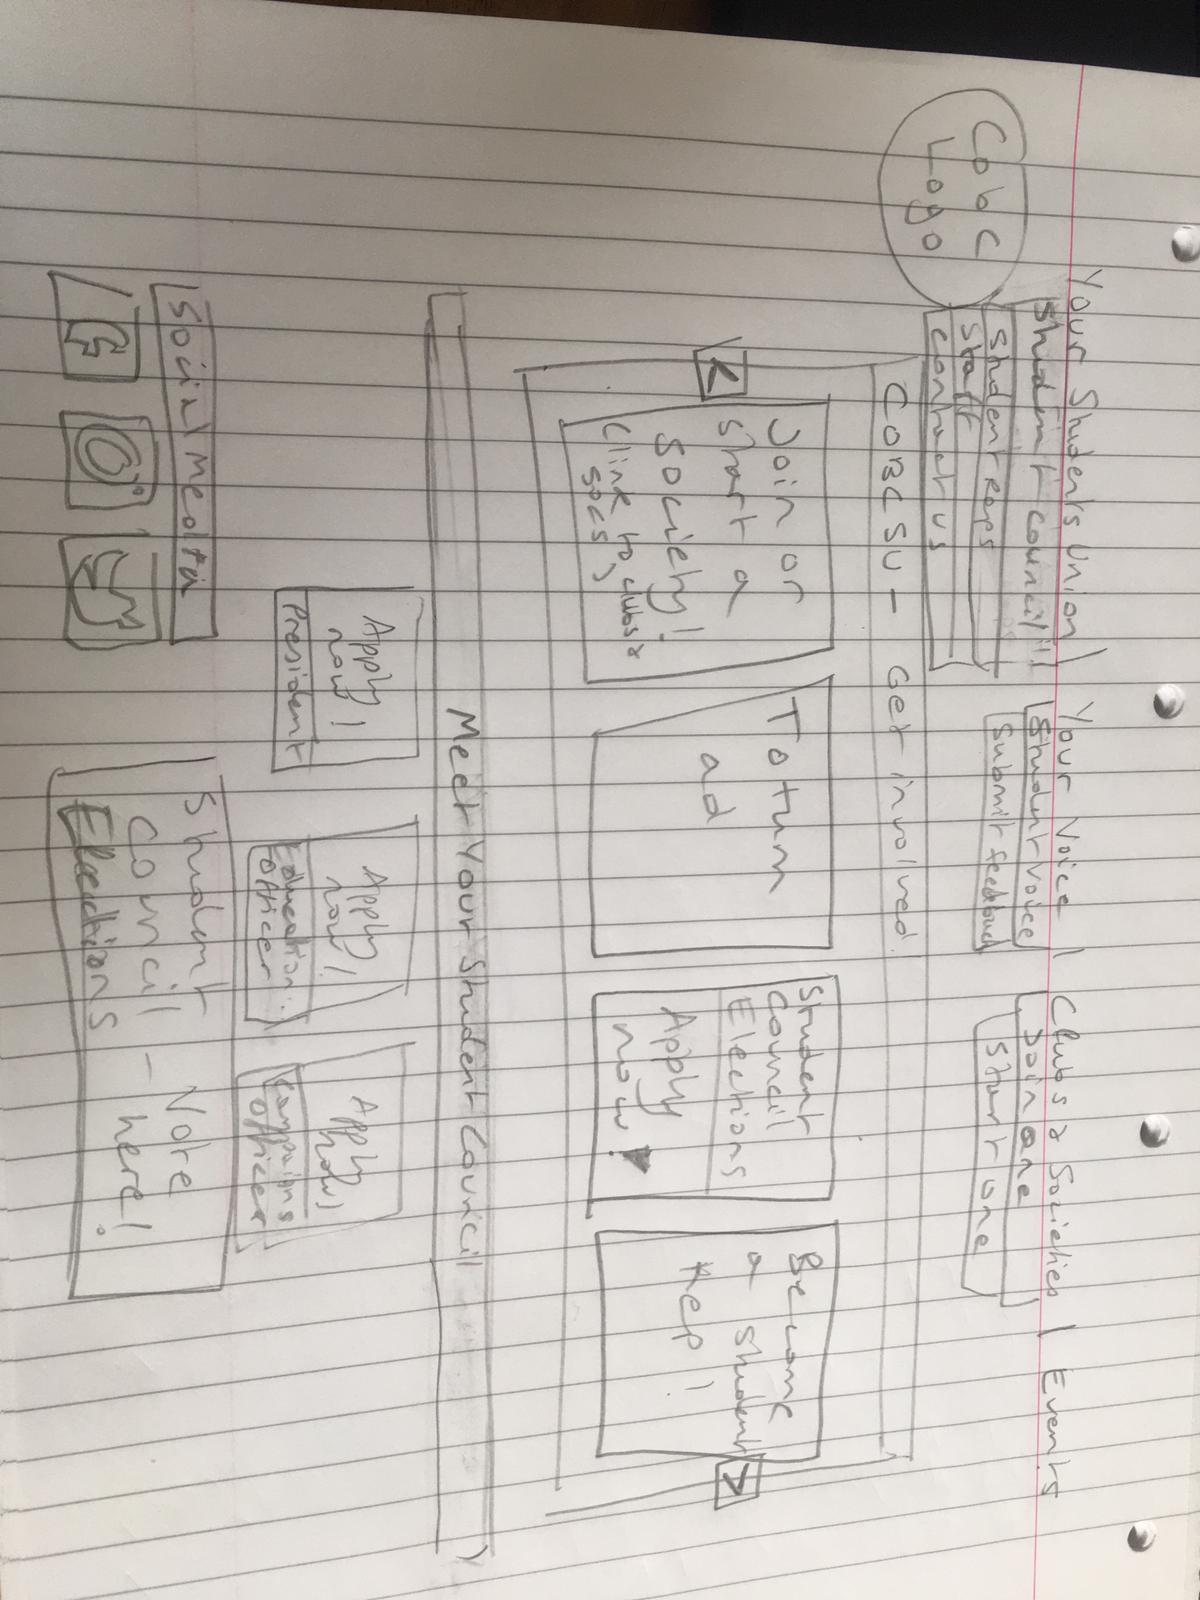 Your Students Union | Your Voice | Clubs & Societies | Events
Student Council
Student Reps
Staff
Contact us
Student Voice
Submit feedback
Join one
Start one
CobC
Logo
COBCSU - Get involved
<
Join or
start a
society!
(link to clubs &
socs)
Totum
ad
Student
Council
Elections
Apply
now!
Become
a Student
Rep!
>
Meet Your Student Council
Apply
now!
President
Apply
now!
Education
Officer
Apply
now!
Campaigns
Officer
Social Media
Student
Council
Elections
- Vote
here!